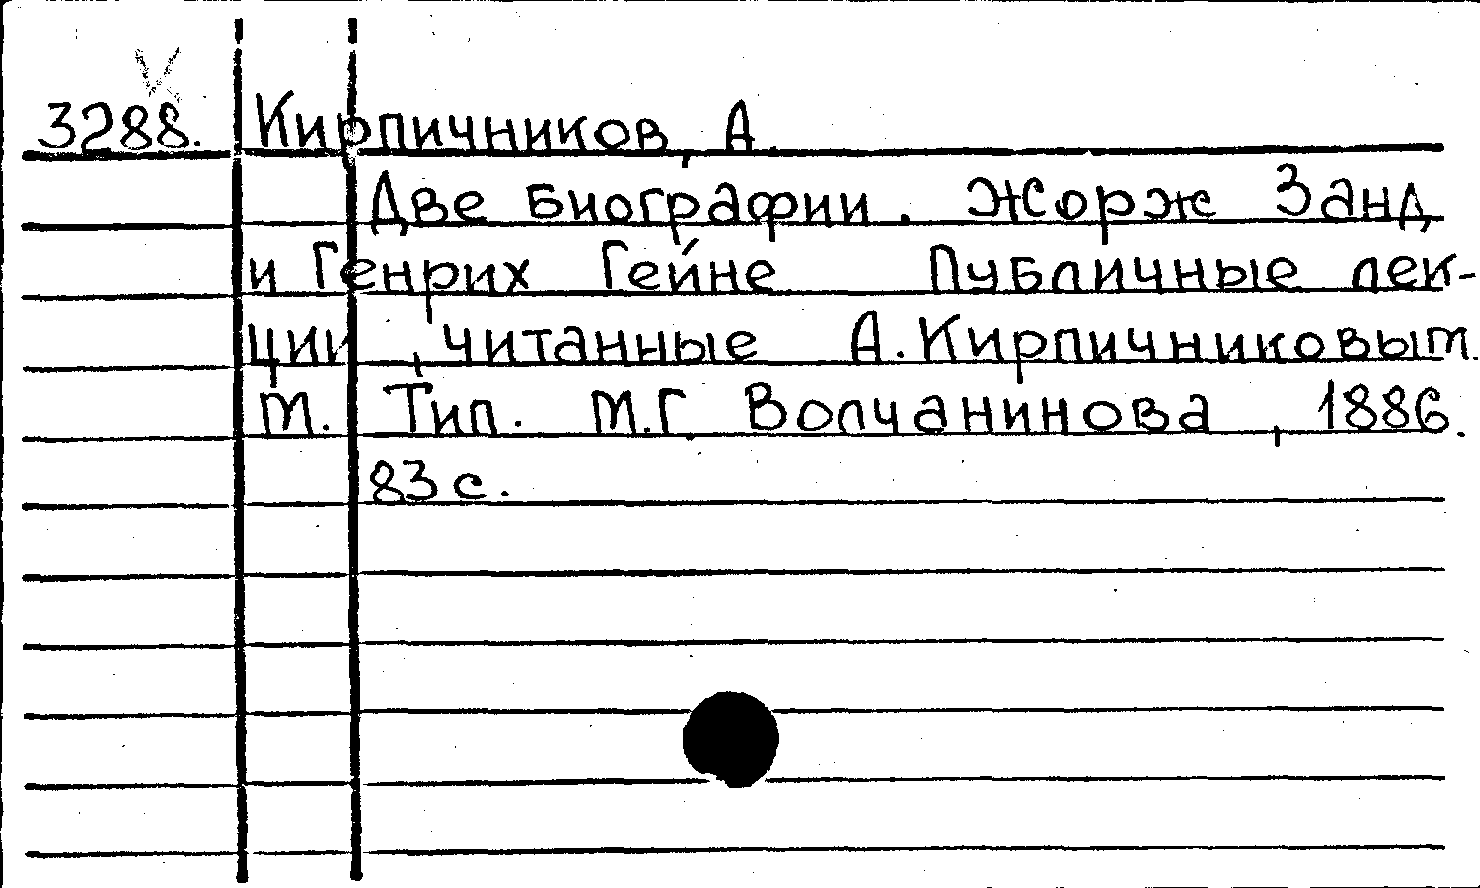 3288. Кирпичников, А.
Две биографии. Жорж Занд
и Генрих Гейне Публичные лек-
ции, читанные А. Кирпичниковым.
М. Тип. М.Г. Волчанинова, 1886.
83 с.